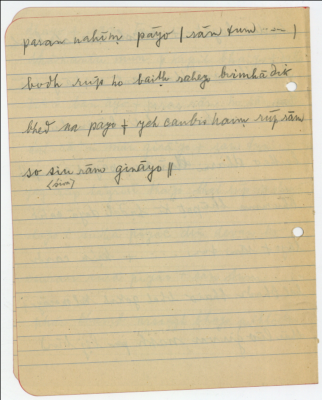 param nahīṃ pāyo | rām tum — |
bodh rūp ho baiṭh rahe brimhādik
bhed na payo + yeh caubis haiṃ rūp rām
so siu rām gināyo ||
(śiv)